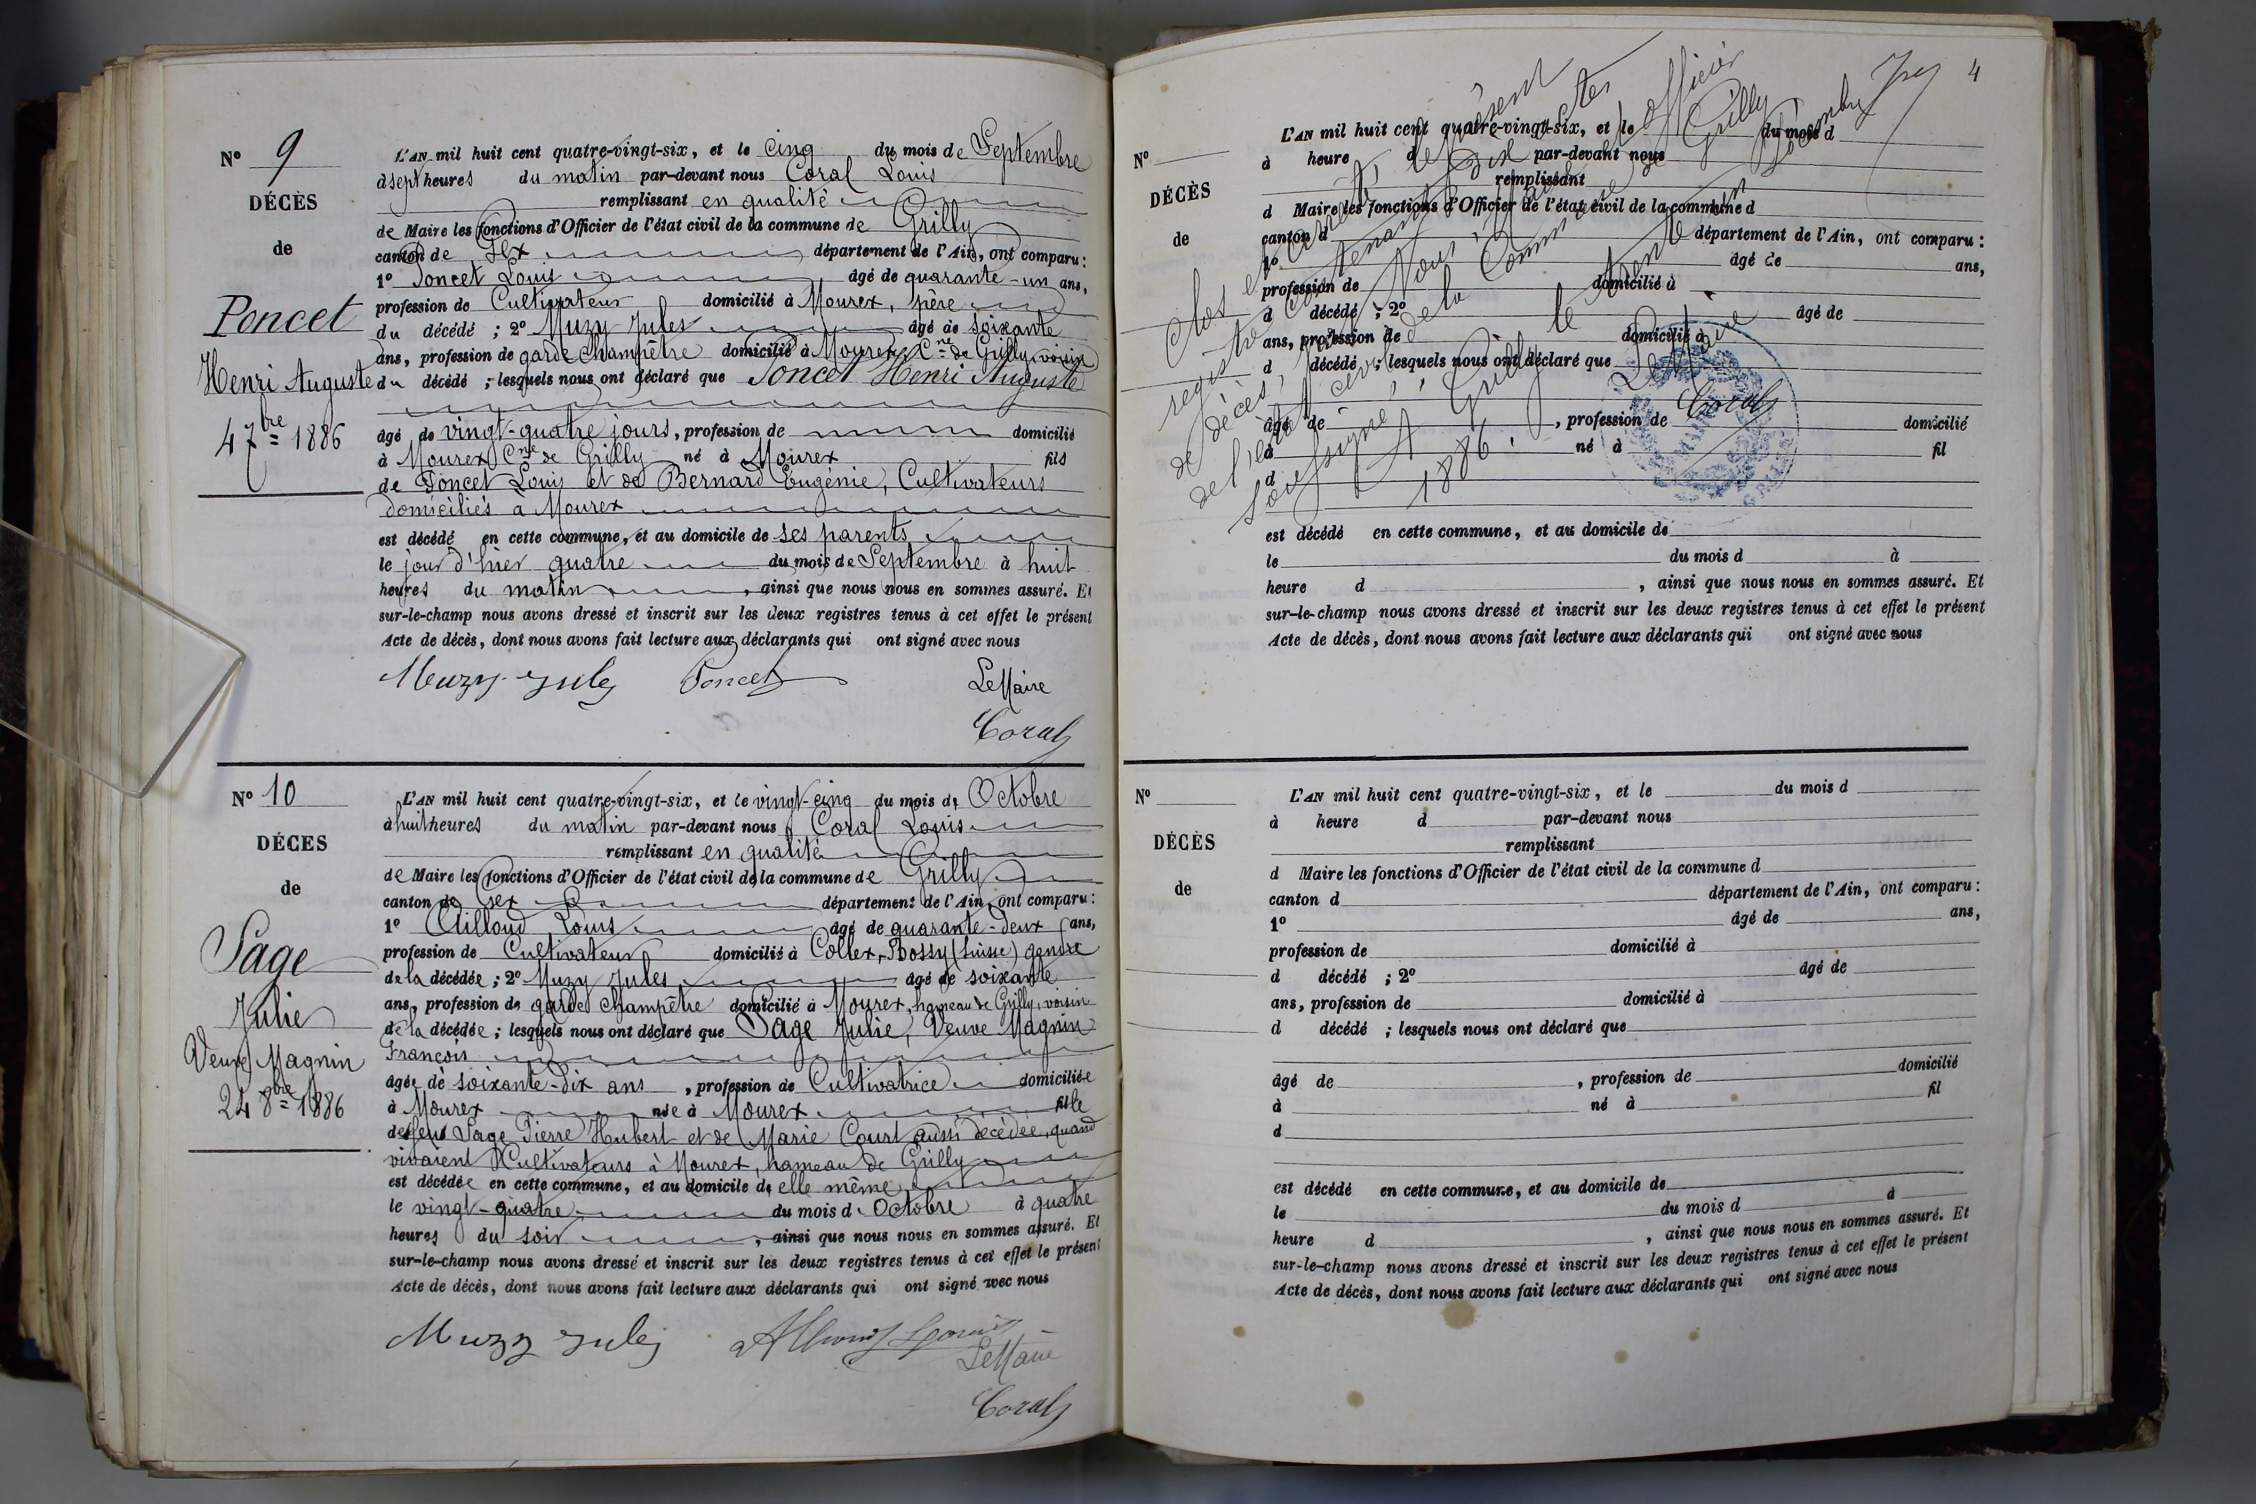 N° 9
DÉCÈS
de
Poncet
Henri Auguste
4 7bre 1886
L'AN mil huit cent quatre-vingt-six, et le cinq du mois de Septembre
à sept heures du matin par-devant nous Coral Louis
remplissant en qualité
de Maire les fonctions d'Officier de l'état civil de la commune de Grilly
canton de Gex département de l'Ain, ont comparu :
1° Poncet Louis âgé de quarante-un ans,
profession de Cultivateur domicilié à Mourex, père
du décédé ; 2° Muzy Jules âgé de soixante
ans, profession de garde champêtre domicilié à Mourex, Cne de Grilly, voisin
du décédé ; lesquels nous ont déclaré que Poncet Henri Auguste
âgé de vingt-quatre jours, profession de domicilié
à Mourex Cne de Grilly né à Mourex fils
de Poncet Louis et de Bernard Eugénie, Cultivateurs
domiciliés à Mourex
est décédé en cette commune, et au domicile de ses parents
le jour d'hier quatre du mois de Septembre à huit
heures du matin, ainsi que nous nous en sommes assuré. Et
sur-le-champ nous avons dressé et inscrit sur les deux registres tenus à cet effet le présent
Acte de décès, dont nous avons fait lecture aux déclarants qui ont signé avec nous
Muzy Jules Poncet Le Maire
Coral
N° 10
DÉCÈS
de
Sage
Julie
Veuve Magnin
24 8bre 1886
L'AN mil huit cent quatre-vingt-six, et le vingt-cinq du mois d'Octobre
à huit heures du matin par-devant nous Coral Louis
remplissant en qualité
de Maire les fonctions d'Officier de l'état civil de la commune de Grilly
canton de Gex département de l'Ain, ont comparu :
1° Louis âgé de quarante-deux ans,
profession de Cultivateur domicilié à Collex-Bossy (Suisse) gendre
de la décédée ; 2° Muzy Jules âgé de soixante
ans, profession de garde champêtre domicilié à Mourex, hameau de Grilly, voisin
de la décédée ; lesquels nous ont déclaré que Sage Julie, Veuve Magnin
François
âgée de soixante-dix ans, profession de Cultivatrice domiciliée
à Mourex née à Mourex fille
de feu Sage Pierre Hubert et de Marie Court aussi décédée, quand
vivaient Cultivateurs à Mourex, hameau de Grilly
est décédée en cette commune, et au domicile d'elle même
le vingt-quatre du mois d'Octobre à quatre
heures du soir, ainsi que nous nous en sommes assuré. Et
sur-le-champ nous avons dressé et inscrit sur les deux registres tenus à cet effet le présent
Acte de décès, dont nous avons fait lecture aux déclarants qui ont signé avec nous
Muzy Jules Louis Le Maire
Coral
4
Clos et arrêté, le présent
registre contenant dix actes
de décès, par Nous, Maire, Officier
de l'état civil de la Commune de Grilly
soussigné, A Grilly le trente un Décembre
1886.
Le Maire
Coral
N°
DÉCÈS
de
L'AN mil huit cent quatre-vingt-six, et le du mois d
à heure d par-devant nous
remplissant
d Maire les fonctions d'Officier de l'état civil de la commune d
canton d département de l'Ain, ont comparu :
1° âgé de ans,
profession de domicilié à
d décédé ; 2° âgé de
ans, profession de domicilié à
d décédé ; lesquels nous ont déclaré que
âgé de , profession de domicilié
à né à fil
d
est décédé en cette commune, et au domicile de
le du mois d à
heure d , ainsi que nous nous en sommes assuré. Et
sur-le-champ nous avons dressé et inscrit sur les deux registres tenus à cet effet le présent
Acte de décès, dont nous avons fait lecture aux déclarants qui ont signé avec nous
N°
DÉCÈS
de
L'AN mil huit cent quatre-vingt-six, et le du mois d
à heure d par-devant nous
remplissant
d Maire les fonctions d'Officier de l'état civil de la commune d
canton d département de l'Ain, ont comparu :
1° âgé de ans,
profession de domicilié à
d décédé ; 2° âgé de
ans, profession de domicilié à
d décédé ; lesquels nous ont déclaré que
âgé de , profession de domicilié
à né à fil
d
est décédé en cette commune, et au domicile de
le du mois d à
heure d , ainsi que nous nous en sommes assuré. Et
sur-le-champ nous avons dressé et inscrit sur les deux registres tenus à cet effet le présent
Acte de décès, dont nous avons fait lecture aux déclarants qui ont signé avec nous